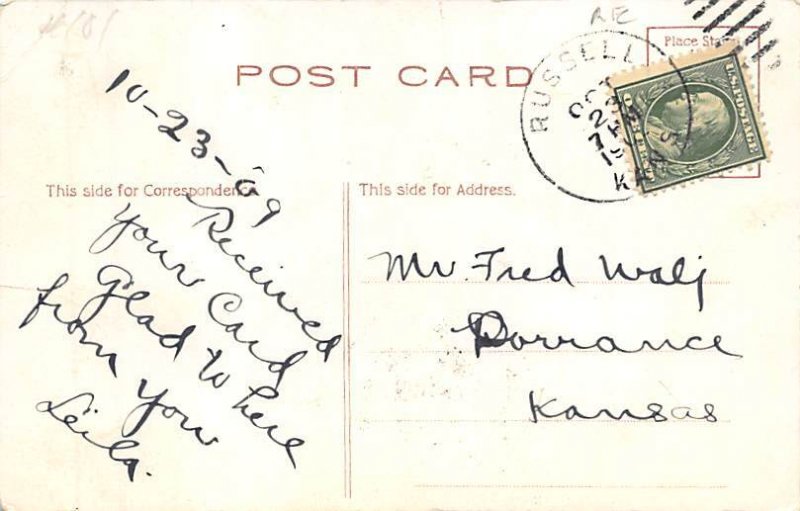 RE
Place Stamp
POST CARD
RUSSELL
OCT
23
7 PM
19
KANS
U.S. POSTAGE
This side for Correspondence.
This side for Address.
10-23-09
Received
Your Card
Glad
Where
from you
Leila.
Mr. Fred Walj
Dorrance
Kansas